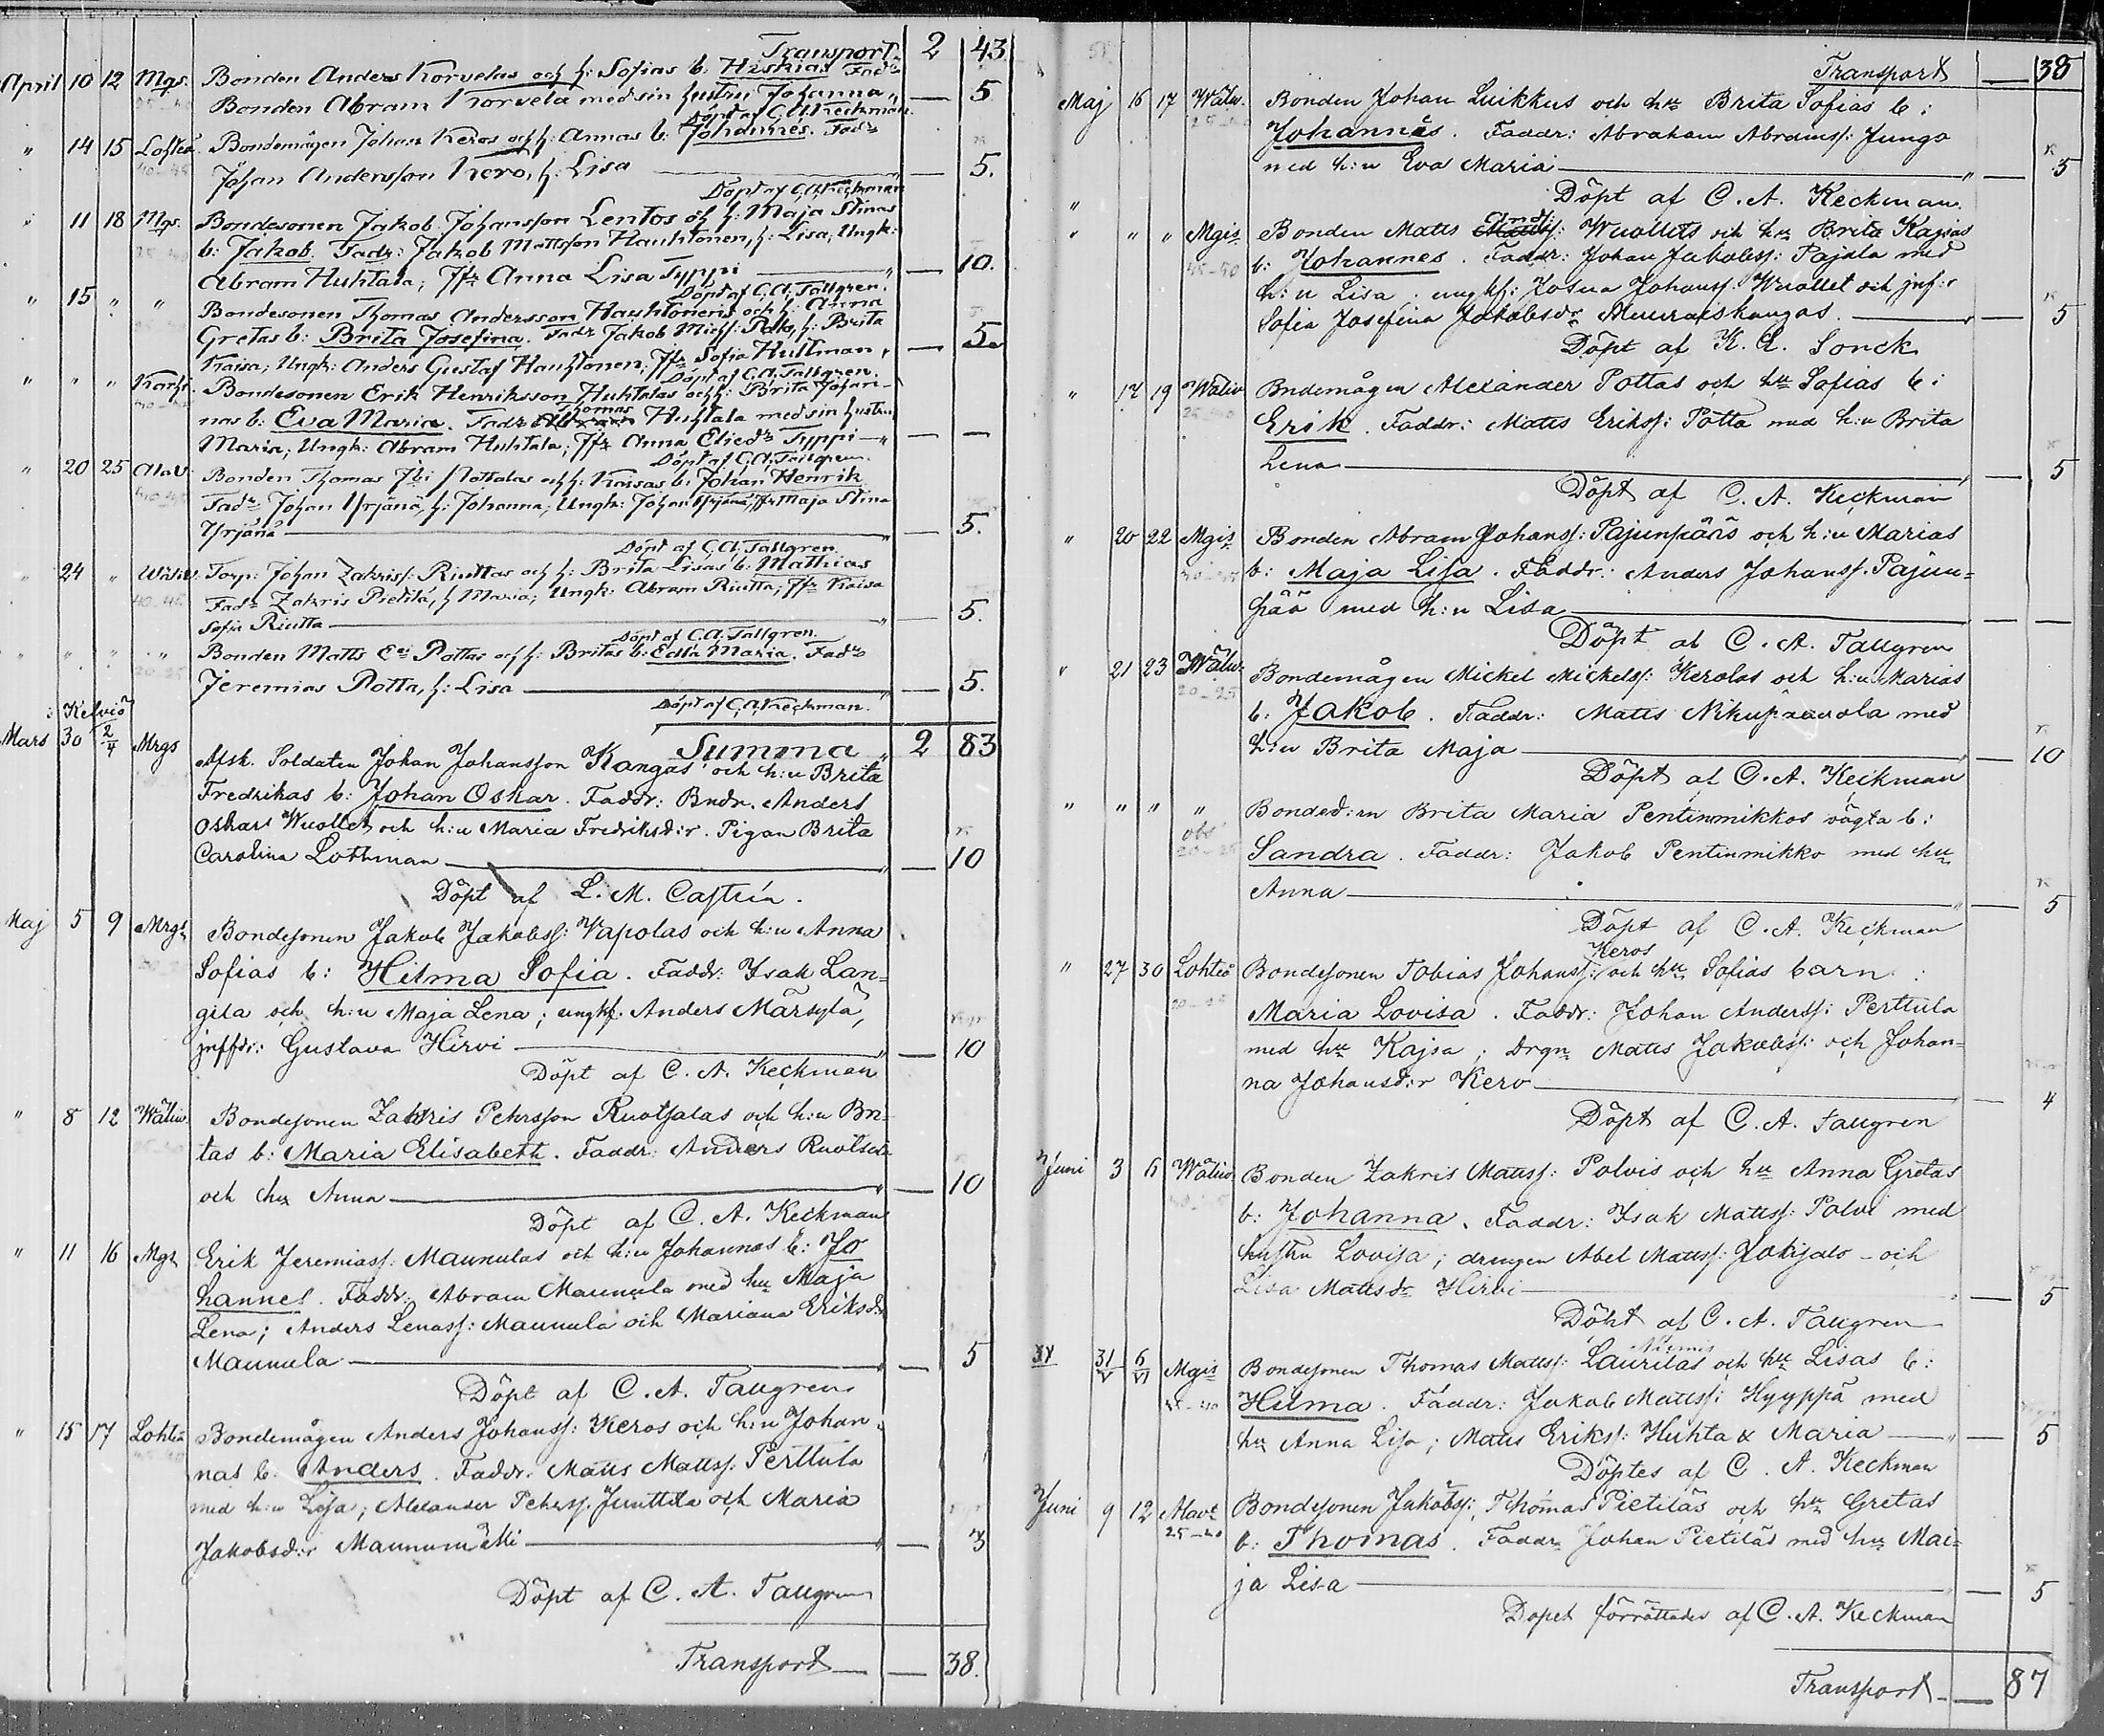 Transport 2 43
April 10 12 Mgs. Bonden Anders Korvelas och h: Sofias b: Heskias Fadr
Bonden Abram Korvela med sin hustru Johanna „ — 5
Döpt af C.A. Keckman.
„ 14 15 Lohteå. Bondemågen Johan Keros och h: Annas b: Johannes. Fadr
Johan Andersson Kero, h: Lisa — 5.
Döpt af C.A. Keckman
„ 11 18 Mgs. Bondesonen Jakob Johansson Lentos och h: Maja Stinas
b: Jakob. Fadr: Jakob Mattsson Hauhtonen, h: Lisa, Ungk:
Abram Huhtala; Jfr Anna Lisa Typpi — 10.
Döpt af C.A. Tallgren.
„ 15 „ „ Bondesonen Thomas Andersson Hauhtonens och h: Anna
Gretas b: Brita Josefina. Fadr Jakob Michss: Palo, h: Brita
Kaisa; Ungk: Anders Gustaf Hauhtonen; Jfr Sofia Hultman, — 5.
Döpt af C.A. Tallgren.
„ „ „ Bondesonen Erik Henriksson Huhtalas och h: Brita Johan-
nas b: Eva Maria. Fadr Thomas Huhtala med sin hustru
Maria; Ungk: Abram Huhtala; Jfr Anna Eliedr Typpi — „ — —
Döpt af C.A. Tallgren.
„ 20 25 Alav. Bonden Thomas h: Kaisas b: Johan Henrik
Fadr Johan Yrjänä, h: Johanna; Ungk: Johan Yrjänä, Jfr Maja Stina
Yrjänä — 5.
Döpt af C.A. Tallgren.
„ 24 „ Wäliv. Torp: Johan Zakriss: Riuttas och h: Brita Lisas b: Mathias
Fadr Zakris Pietilä, h Maria; Ungk: Abram Riutta; Jfr Kaisa
Sofia Riutta — 5.
Döpt af C.A. Tallgren.
„ „ „ „ Bonden Matts Pottas och h: Britas b: Edla Maria. Fadr
Jeremias Potta, h: Lisa — 5.
Döpt af C.A. Keckman.
i Kelviå
Summa „ 2 83
Mars 30 2/4 Mrgs Afsk. Soldaten Johan Johansson Kangas och h:u Brita
Fredrikas b: Johan Oskar. Faddr: Bndn. Anders
Oskar Wuollet och h:u Maria Fredriksd:r. Pigan Brita
Carolina Lothman — 10
Döpt af L. M. Castrén.
Maj 5 9 Mrgs Bondesonen Jakob Jakobss: Vapolas och h:u Anna
Sofias b: Hilma Sofia. Faddr: Isak Lan-
gila och h:u Maja Lena; ungkf. Anders Märsylä,
jnffdr: Gustava Hirvi — 10
Döpt af C. A. Keckman
„ 8 12 Wäliv. Bondesonen Zakris Petersson Ruotsalas och h:u Bri-
tas b: Maria Elisabeth. Faddr: Anders Ruotsala
och hu Anna — 10
Döpt af C. A. Keckman
„ 11 16 Mgs Erik Jeremiass: Maunulas och h:u Johannas b: Jo
hannes. Faddr: Abram Maunula med hu Maja
Lena; Anders Lenass: Maunula och Mariana Eriksdr
Maunula — 5
Döpt af C. A. Tallgren
„ 15 17 Lohteå Bondemågen Anders Johanss: Keros och h:u Johan-
nas b: Anders. Faddr. Matts Mattss: Perttula
med h:u Lisa; Alexander Peterss. Junttila och Maria
Jakobsd:r Maunumäki — 3
Döpt af C. A. Tallgren
Transport — 38.
Transport — 38
Maj 16 17 Wäliv. Bonden Johan Luikkus och hu Brita Sofias b:
Johannes. Faddr: Abraham Abramss: Junga
med h:u Eva Maria — 5
Döpt af C. A. Keckman.
„ „ „ Mgis Bonden Matts Ands: Wuollets och hu Brita Kajsas
45-50 b: Johannes. Faddr: Johan Jakobss: Pajala med
h:u Lisa; ungkf: Josua Johanss: Wuollet och jnf:r
Sofia Josefina Jakobsdr Muuraiskangas. — 5
Döpt af K. L. Sonck
„ 17 19 Wäliv Bndemågen Alexander Pottas och hu Sofias b:
Erik. Faddr: Matts Erikss: Potta med h:u Brita
Lena — 5
Döpt af C. A. Keckman
„ 20 22 Mgis Bonden Abram Johanss: Pajunpääs och h:u Marias
b: Maja Lisa. Faddr: Anders Johanss. Pajun-
pää med h:u Lisa — —
Döpt af C. A. Tallgren
„ 21 23 Wäliv. Bondemågen Mickel Mickelss: Kerolas och h:u Marias
20-25 b: Jakob. Faddr: Matts med
h:u Brita Maja — 10
Döpt af C. A. Keckman
„ „ „ „ Bonded:rn Brita Maria Pentinmikkos oägta b:
obs 20-25 Sandra. Faddr: Jakob Pentinmikko med hu
Anna — 5
Döpt af C. A. Keckman
„ 27 30 Lohteå Bondesonen Tobias Johanss: Keros och hu Sofias barn:
Maria Lovisa. Faddr: Johan Anderss: Perttula
med hu Kajsa; Drgn Matts Jakobss: och Johan-
na Johansd:r Kero — 4
Döpt af C. A. Tallgren
Juni 3 6 Wäliv Bonden Zakris Mattss: Polvis och hu Anna Gretas
b: Johanna. Faddr: Isak Mattss: Polvi med
hustru Lovisa; drengen Abel Mattss: Jokisalo och
Lisa Mattsdr Hirvi — 5
Döpt af C. A. Tallgren
31/V 6/VI Mgis Bondesonen Thomas Mattss: Niemis Lauritas och hu Lisas b:
Hilma. Faddr: Jakob Mattss: Hyyppä med
hu Anna Lisa; Matts Erikss: Huhta & Maria — 5
Döptes af C. A. Keckman
Juni 9 12 Alavt Bondesonen Jakobss: Thomas Pietiläs och hu Gretas
b: Thomas. Faddr Johan Pietiläs med hu Mai-
ja Lisa — 5
Dopet förrättades af C. A. Keckman
Transport — 87